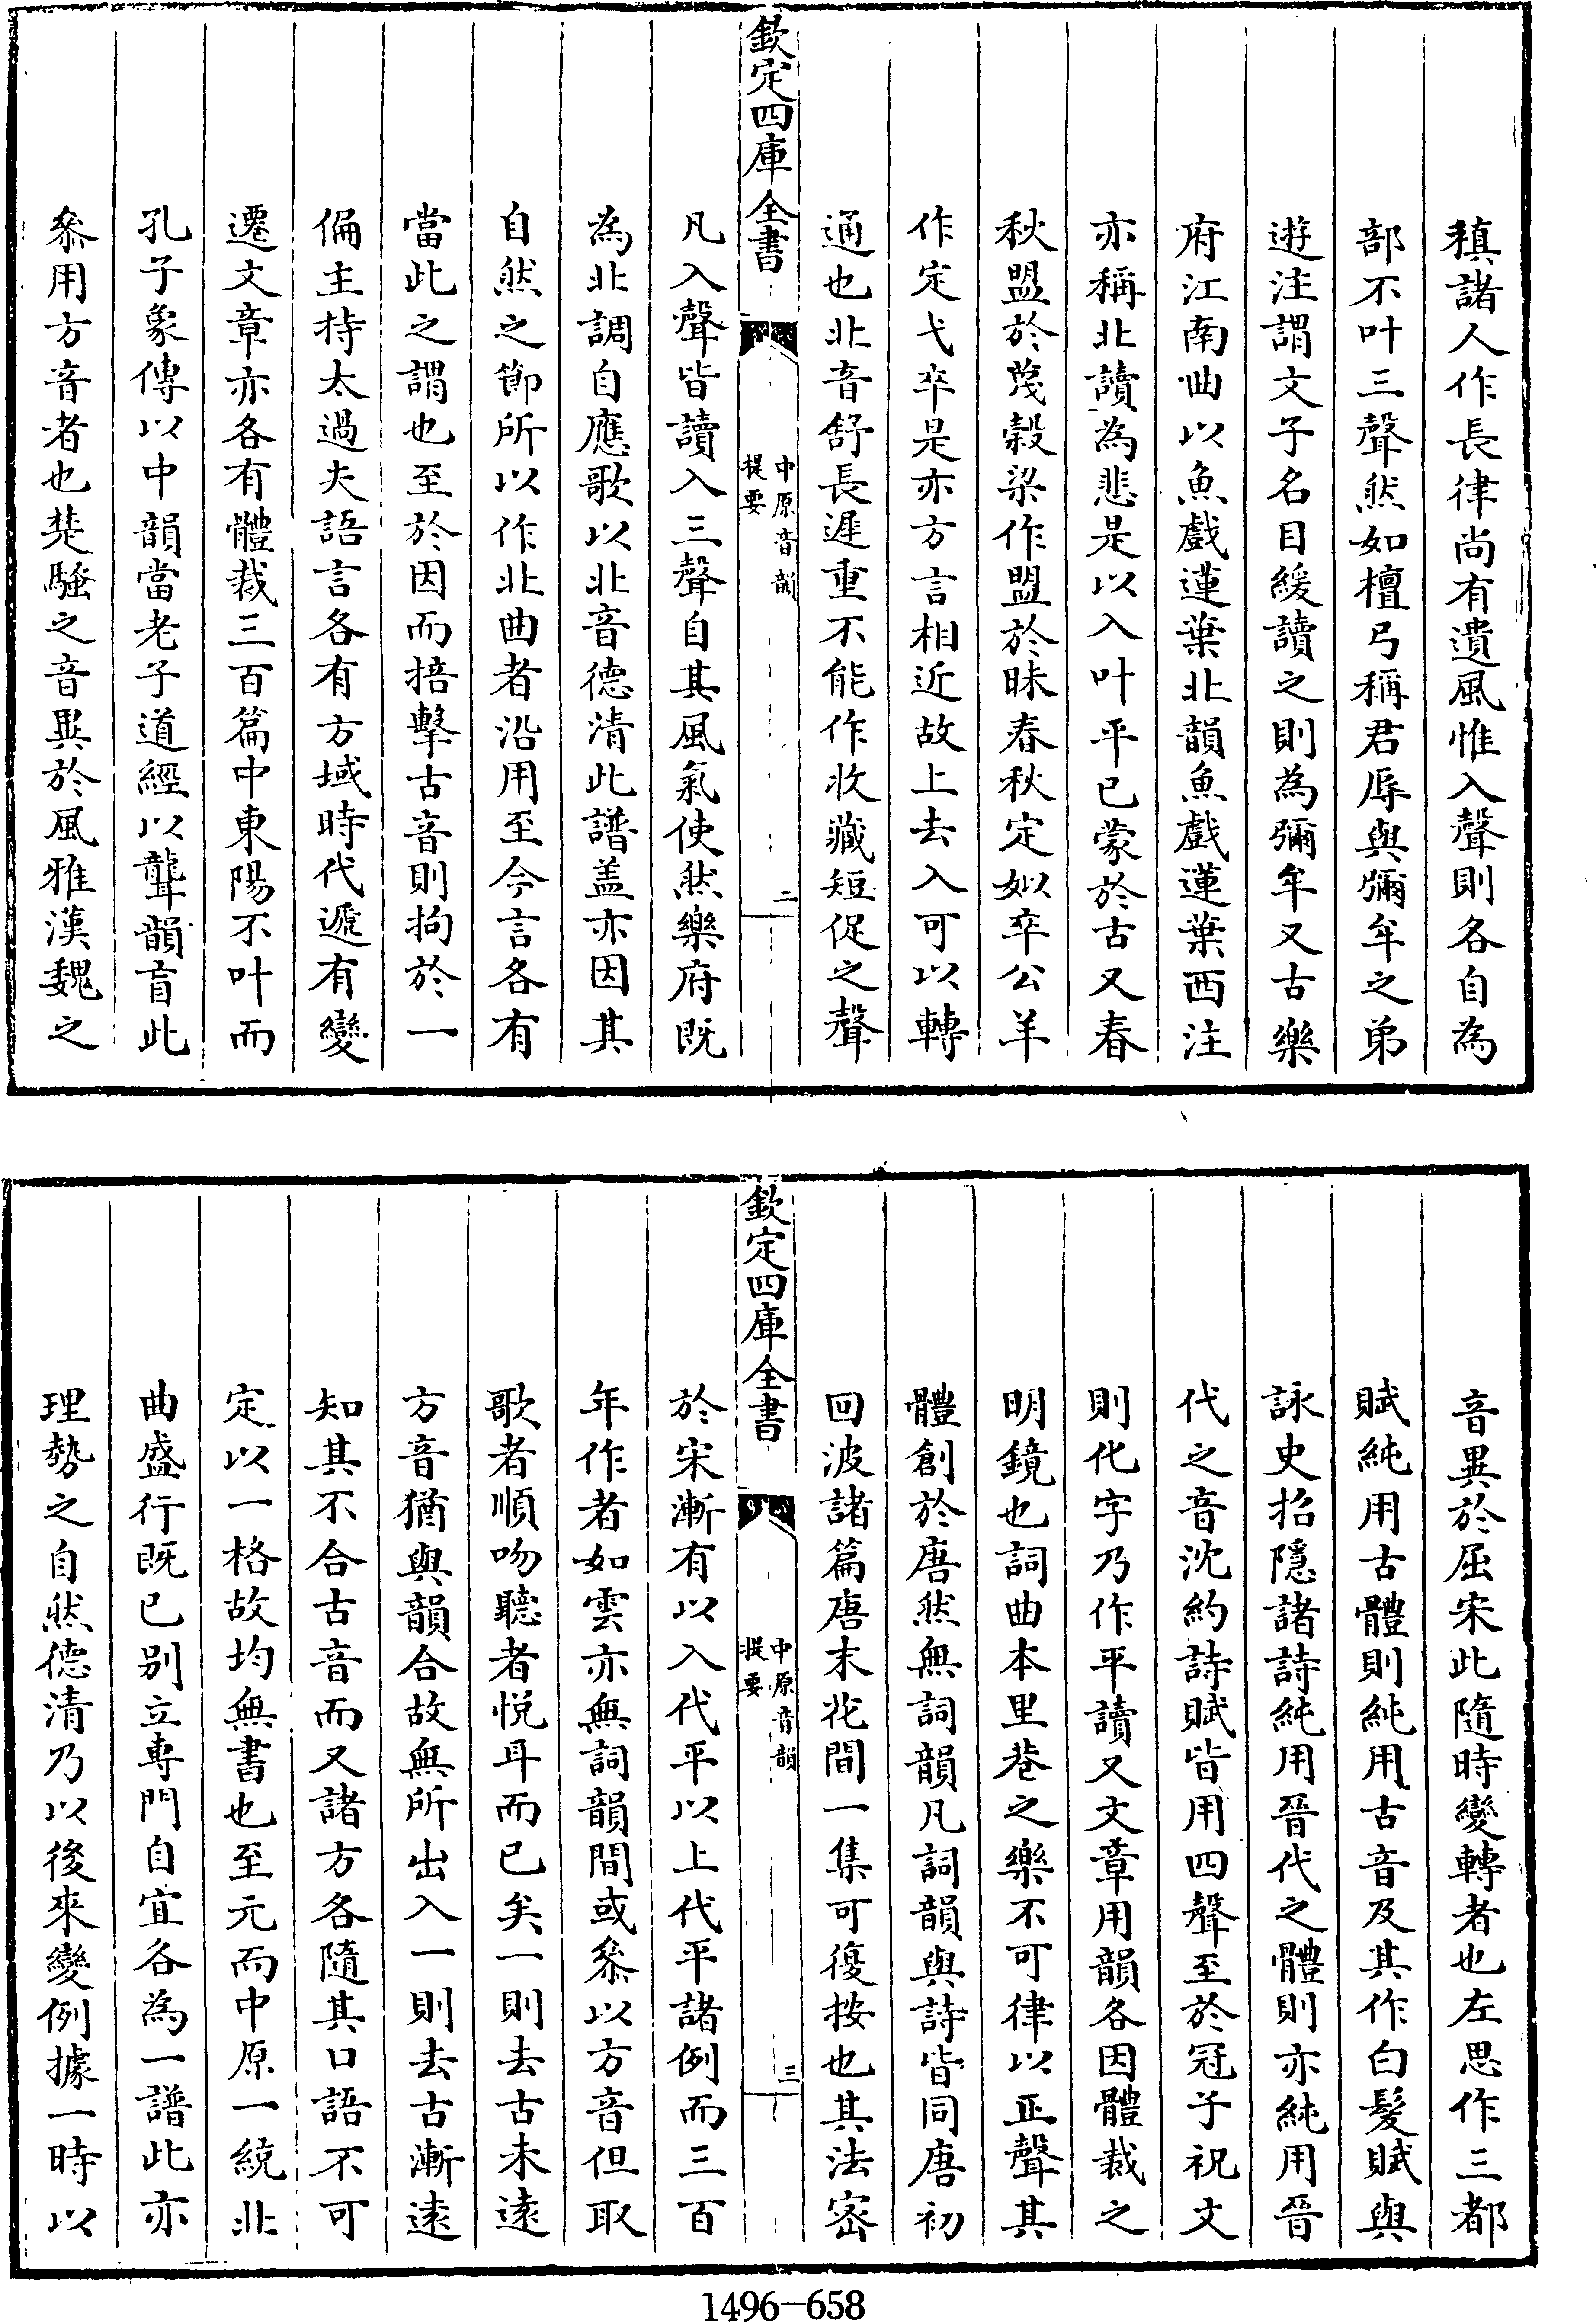 稹諸人作長律尚有遺風惟入聲則各自為
部不叶三聲然如檀弓稱君辱與彌牟之弟
遊注謂文子名目緩讀之則為彌牟又古樂
府江南曲以魚戲蓮葉北韻魚戲蓮葉西注
亦稱北讀為悲是以入叶平已蒙於古又春
秋盟於蔑榖梁作盟於昧春秋定姒卒公羊
作定弋卒是亦方言相近故上去入可以轉
通也北音舒長遲重不能作收藏短促之聲
欽定四庫全書
中原音韻
提要
二
凡入聲皆讀入三聲自其風氣使然樂府既
為北調自應歌以北音德清此譜蓋亦因其
自然之節所以作北曲者沿用至今言各有
當此之謂也至於因而掊擊古音則拘於一
偏主持太過夫語言各有方域時代遞有變
遷文章亦各有體裁三百篇中東陽不叶而
孔子象傳以中韻當老子道經以聾韻盲此
叅用方音者也楚騷之音異於風雅漢魏之
音異於屈宋此隨時變轉者也左思作三都
賦純用古體則純用古音及其作白髮賦與
詠史招隱諸詩純用晉代之體則亦純用晉
代之音沈約詩賦皆用四聲至於冠子祝文
則化字乃作平讀又文章用韻各因體裁之
明鏡也詞曲本里巷之樂不可律以正聲其
體創於唐然無詞韻凡詞韻與詩皆同唐初
回波諸篇唐末花間一集可復按也其法密
欽定四庫全書
中原音韻
提要
三
於宋漸有以入代平以上代平諸例而三百
年作者如雲亦無詞韻間或叅以方音但取
歌者順吻聽者悅耳而已矣一則去古未遠
方音猶與韻合故無所出入一則去古漸遠
知其不合古音而又諸方各隨其口語不可
定以一格故均無書也至元而中原一統北
曲盛行既已别立專門自宜各為一譜此亦
理勢之自然德清乃以後來變例據一時以
1496-658